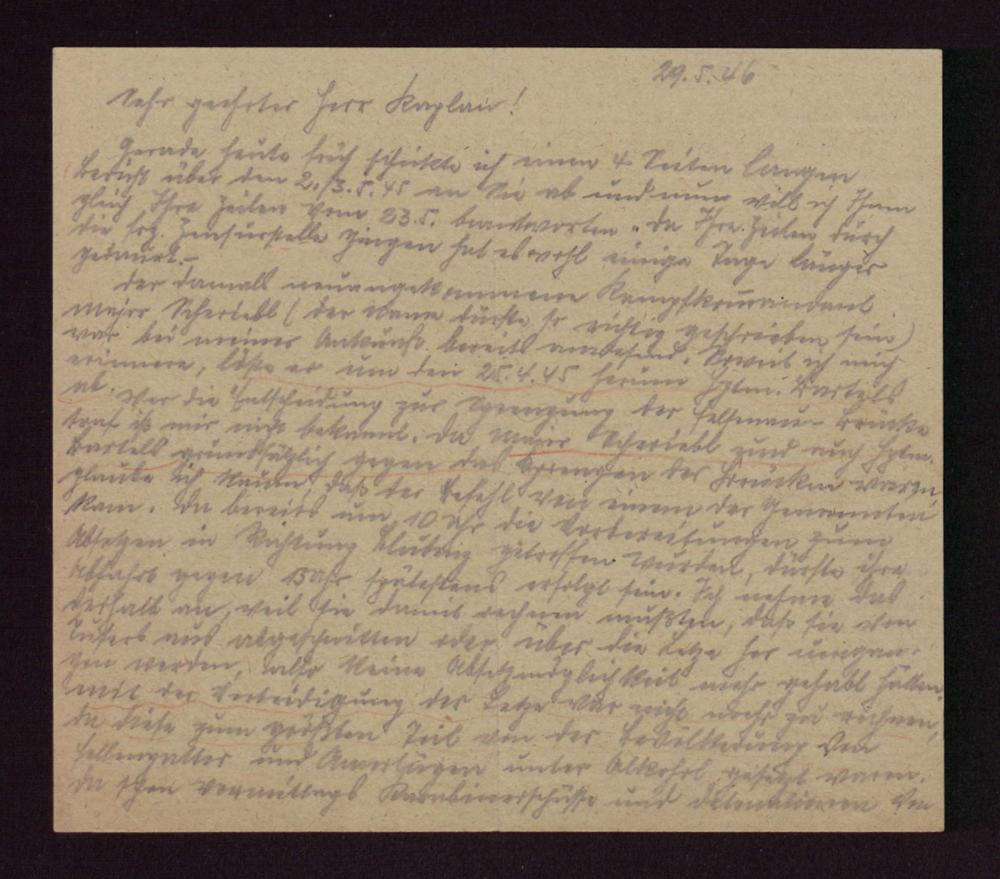 29.5.46
Sehr geehrter Herr Kaplan!
Gerade heute früh schickte ich einen 4 Seiten langen
Bericht über den 2./3.5.45 an Sie ab und nun will ich Ihnen
gleich Ihre Zeilen vom 23.5. beantworten. Da Ihre Zeilen durch
die frz. Zensurstelle gingen hat es wohl einige Tage länger
gedauert.-
Der damals neuangekommene Kampfkommandant
Major Scheriebl (der Name dürfte so richtig geschrieben sein)
war bei meiner Ankunft bereits anwesend. Soweit ich mich
erinnere, löste er um den 25.4.45 herum Hptm. Bartels
ab. Wer die Entscheidung zur Sprengung der Felsenau-Brücke
traf ist mir nicht bekannt. Da Major Scheriebl und auch Hptm.
Bartels grundsätzlich gegen das Sprengen der Brücken waren
glaube ich kaum, daß der Befehl von einem der Genannten
kam. Da bereits um 10 Uhr die Vorbereitungen zum
Absetzen in Richtung Bludenz getroffen wurden, dürfte ihre
Abfahrt gegen 15 Uhr spätestens erfolgt sein. Ich nehme das
deshalb an, weil sie damit rechnen mußten, daß sie von
Tufers aus abgeschnitten oder über die Letze her umgan-
gen werden, also keine Absetzmöglichkeit mehr gehabt hätten,
mit der Verteidigung der Letze war nicht mehr zu rechnen,
da diese zum größten Teil von der Bevölkerung von
Fellengatter und unter Alkohol gesetzt waren.
Da schon vormittags Karabinerschüsse und Detonationen von